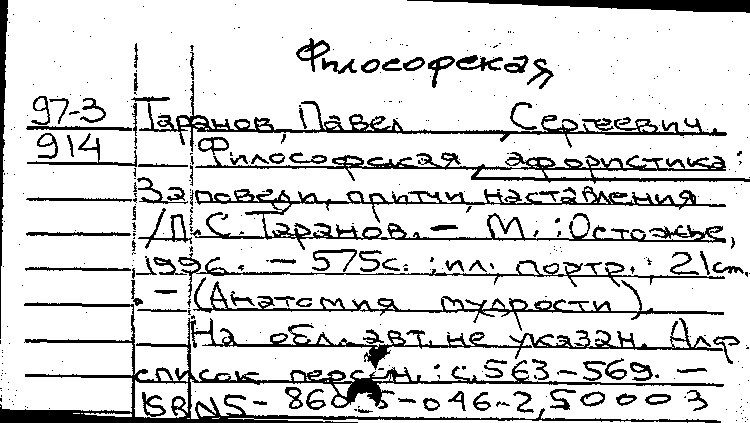 Философская
97-3 Таранов, Павел Сергеевич.
914 Философская афористика:
Заповеди, притчи, наставления
/П.С. Таранов. – М.: Остожье,
1996. – 575с.: ил., портр.; 21см.
. – (Анатомия мудрости).
На обл. авт. не указан. Алф.
список персон.: с. 563-569. –
ISBN5- -046-2, 50003